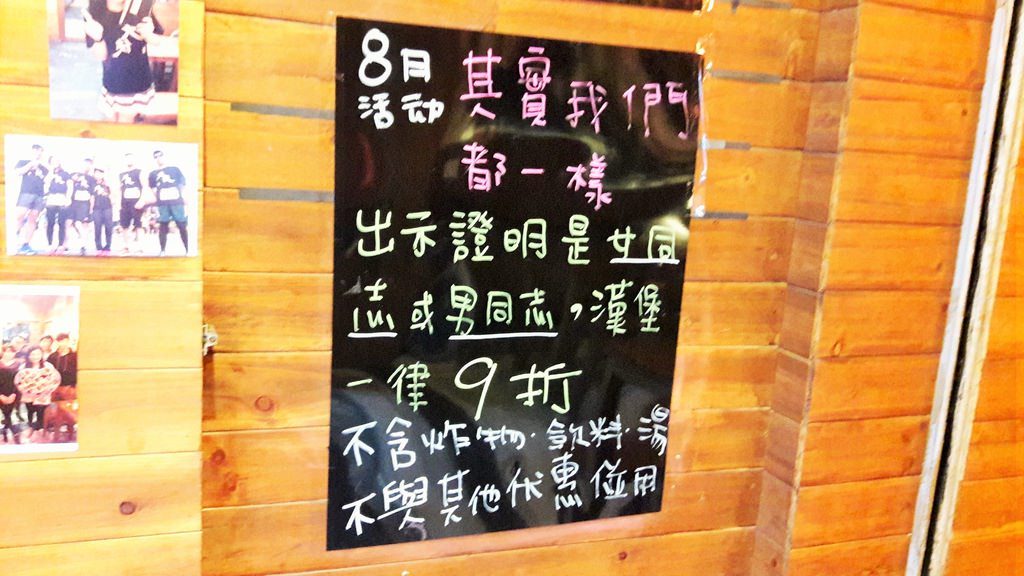 8月活动
其實我們
都一樣
出示證明是女同
志或男同志，漢堡
一律9折
不含炸物.飲料.湯
不與其他优惠併用